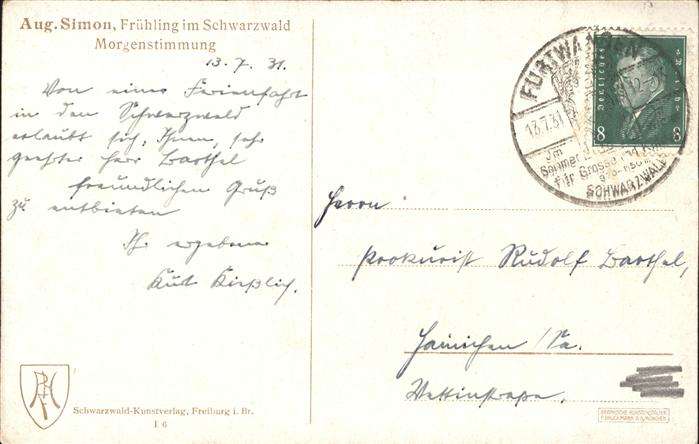 Aug. Simon, Frühling im Schwarzwald
Morgenstimmung
13.7.31.
Von einer Ferienfahrt
in den Schwarzwald
erlaubt sich, Ihnen, sehr
geehrter Herr Barthel
freundlichen Gruß
zu entbieten
Ihr ergebener
Kurt Kießlich.
Schwarzwald-Kunstverlag, Freiburg i. Br.
I 6
FURTWANGEN
13.7.31
12
Im
Sommer
für Gross und
SCHWARZWALD
Deutsches
8 8
Herrn
Prokurist Rudolf Barthel,
Hainichen/Sa.
Wettinstraße,